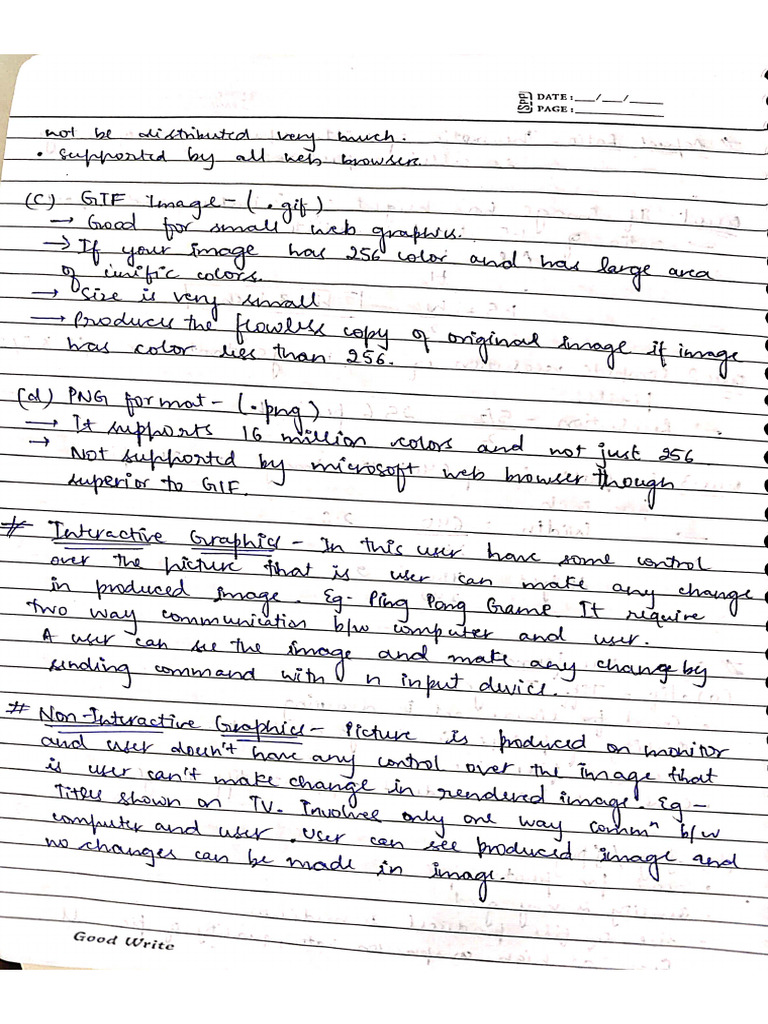 SPP DATE: __/__/____
PAGE: ________
not be distributed very much.
• supported by all web browser.
(c) GIF Image - (.gif)
→ Good for small web graphics.
→ If your image has 256 color and has large area
of unific colors.
→ Size is very small
→ Produces the flowless copy of original image if image
has color less than 256.
(d) PNG format - (.png)
→ It supports 16 million colors and not just 256
→ Not supported by microsoft web browser though
superior to GIF.
# Interactive Graphics - In this user have some control
over the picture that is user can make any change
in produced image. Eg- Ping Pong Game It require
two way communication b/w computer and user.
A user can see the image and make any change by
sending command with n input device.
# Non-Interactive Graphics - Picture is produced on monitor
and user doesn't have any control over the image that
is user can't make change in rendered image. Eg -
Titles shown on TV. Involves only one way commⁿ b/w
computer and user. User can see produced image and
no changes can be made in image.
Good Write